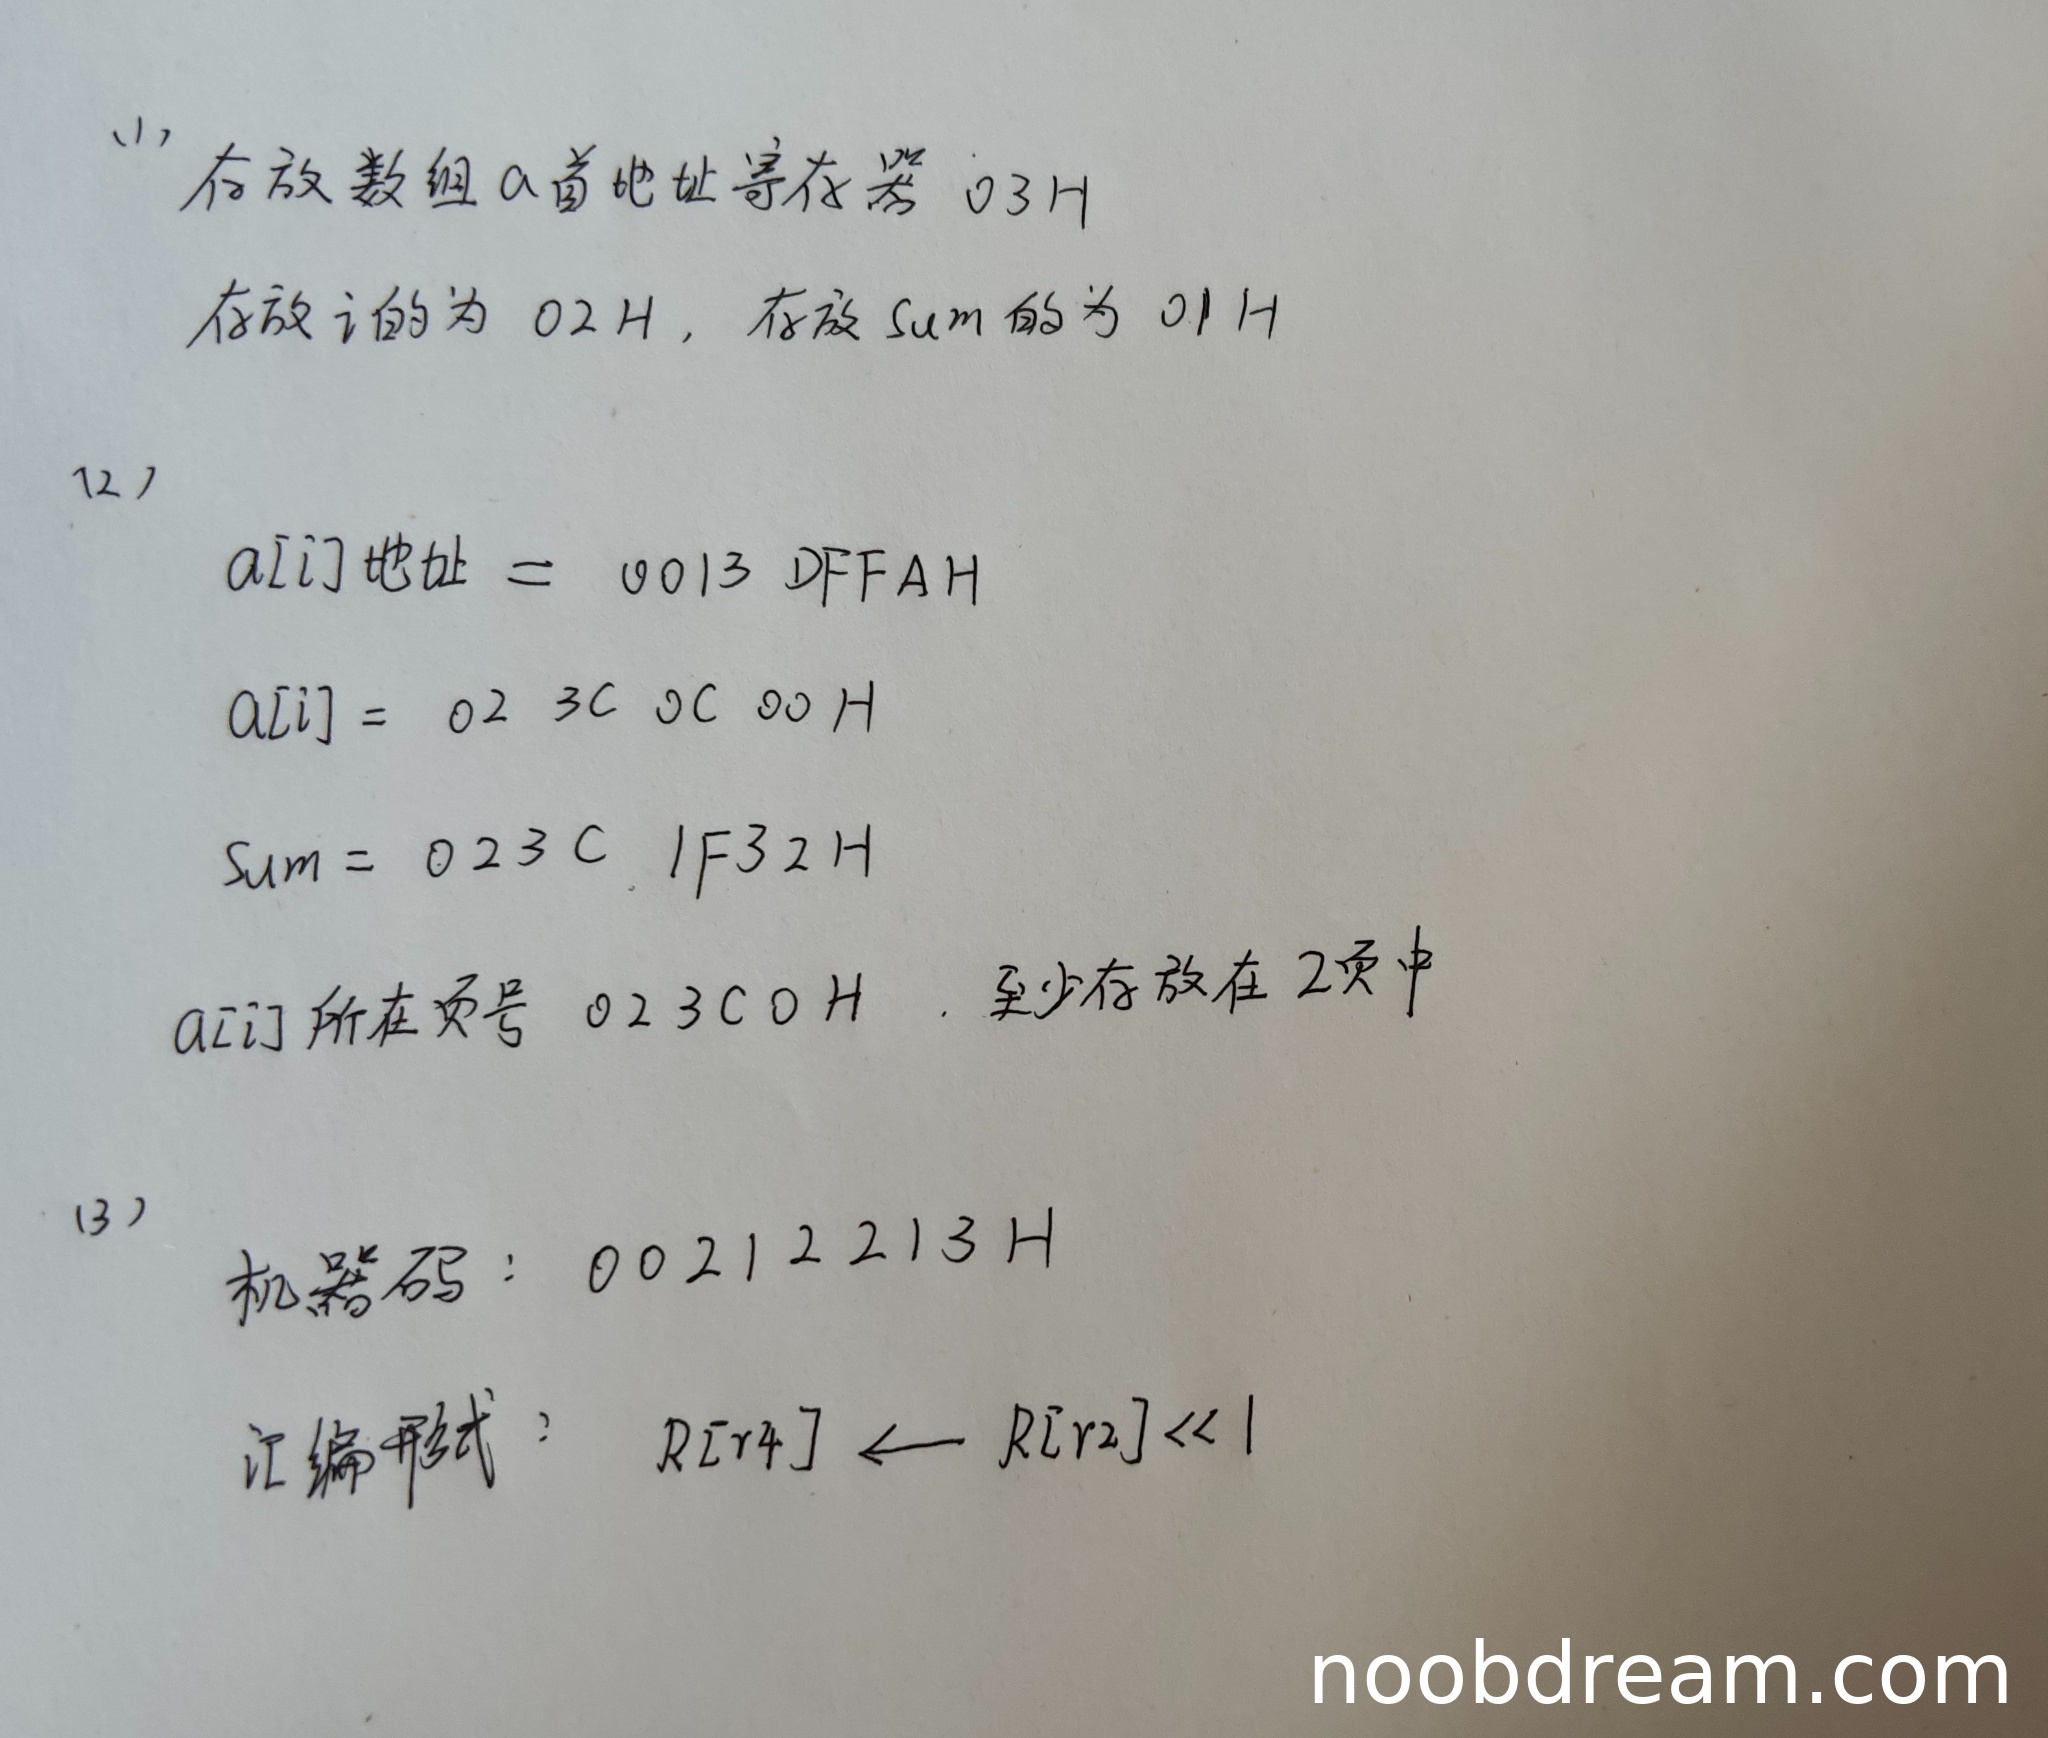 (1)
存放数组a首地址寄存器 03H
存放i的为 02H, 存放sum的为 01H
(2)
a[i]地址 = 0013 DFFAH
a[i] = 02 3C 0C 00 H
sum = 023C 1F32H
a[i]所在页号 023C0H . 至少存放在2页中
(3)
机器码: 00212213H
汇编形式: R[r4] ← R[r2]<<1
noobdream.com